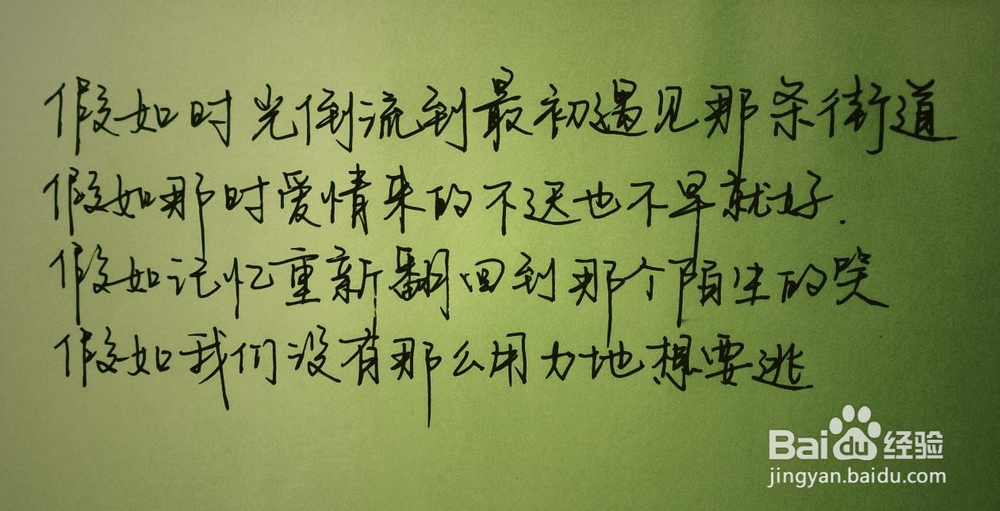 假如时光倒流到最初遇见那条街道
假如那时爱情来的不迟也不早就好.
假如记忆重新翻回到那个陌生的笑
假如我们没有那么用力地想要逃
Baidu经验
jingyan.baidu.com